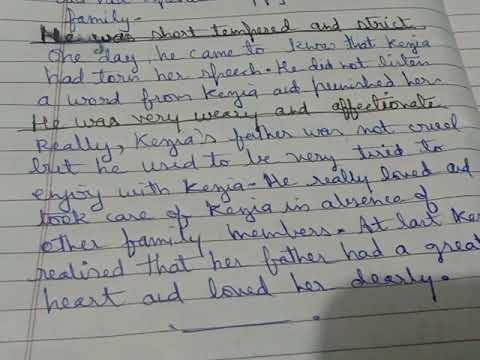 family.
He was short tempered and strict
One day, he came to know that Kezia
had torn her speech. He did not listen
a word from Kezia and punished her.
He was very weary and affectionate
Really, Kezia's father was not cruel
but he used to be very tired to
enjoy with Kezia. He really loved and
took care of Kezia in absence of
other family members. At last Kez
realized that her father had a great
heart and loved her dearly.